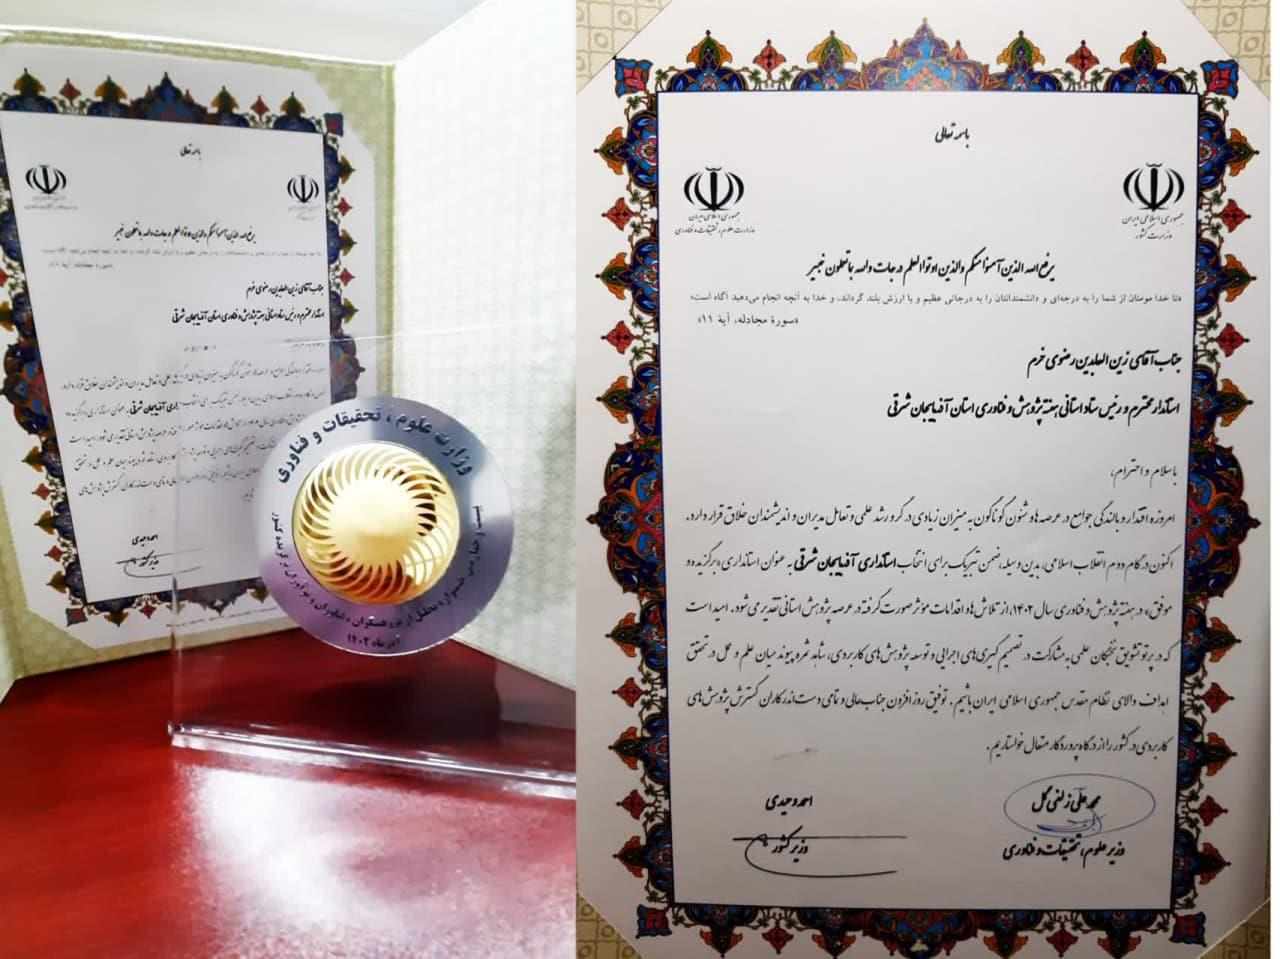 باسمه تعالی
جمهوری اسلامی ایران
وزارت کشور
جمهوری اسلامی ایران
وزارت علوم، تحقیقات و فناوری
یرفع الله الذین آمنوا منکم والذین اوتوا العلم درجات والله بما تعملون خبیر
«تا خدا مومنان از شما را به درجه‌ای و دانشمندانتان را به درجاتی عظیم و با ارزش بلند گرداند، و خدا به آنچه انجام می‌دهید آگاه است»
«سورة مجادله، آیة ۱۱»
جناب آقای زین العابدین رضوی خرم
استاندار محترم و رئیس ستاد استانی هفته پژوهش و فناوری استان آذربایجان شرقی
با سلام و احترام،
امروزه اقتدار و بالندگی جوامع در عرصه‌ها و شئون گوناگون به میزان زیادی در گرو رشد علمی و تعامل مدیران و اندیشمندان خلاق قرار دارد.
اکنون در گام دوم انقلاب اسلامی، بدین وسیله، ضمن تبریک برای انتخاب استانداری آذربایجان شرقی به عنوان استانداری «برگزیده و
موفق» در هفته پژوهش و فناوری سال ۱۴۰۲، از تلاش‌ها و اقدامات موثر صورت گرفته در عرصه پژوهش استانی تقدیر می‌شود. امید است
که در پرتو تشویق نخبگان علمی به مشارکت در تصمیم گیری‌های اجرایی و توسعه پژوهش‌های کاربردی، شاهد ثمره پیوند میان علم و عمل در تحقق
اهداف والای نظام مقدس جمهوری اسلامی ایران باشیم. توفیق روز افزون جناب‌عالی و تمامی دست‌اندرکاران گسترش پژوهش‌های
کاربردی در کشور را از درگاه پروردگار متعال خواستاریم.
محمد علی زلفی گل
وزیر علوم، تحقیقات و فناوری
احمد وحیدی
وزیر کشور
وزارت علوم، تحقیقات و فناوری
جشنواره تجلیل از پژوهشگران، فناوران و نوآوران برگزیده کشور
آذرماه ۱۴۰۲
باسمه تعالی
یرفع الله الذین آمنوا منکم والذین اوتوا العلم درجات والله بما تعملون خبیر
جناب آقای زین العابدین رضوی خرم
استاندار محترم و رئیس ستاد استانی هفته پژوهش و فناوری استان آذربایجان شرقی
احمد وحیدی
وزیر کشور